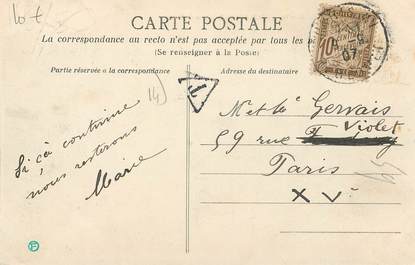 10 t
CARTE POSTALE
La correspondance au recto n'est pas acceptée par tous les
(Se renseigner à la Poste)
Partie réservée à la correspondance
Adresse du destinataire
10
07
14)
T
Si çà continue
nous resterons
Marie
Gervais
59 rue Violet
Paris
XVe